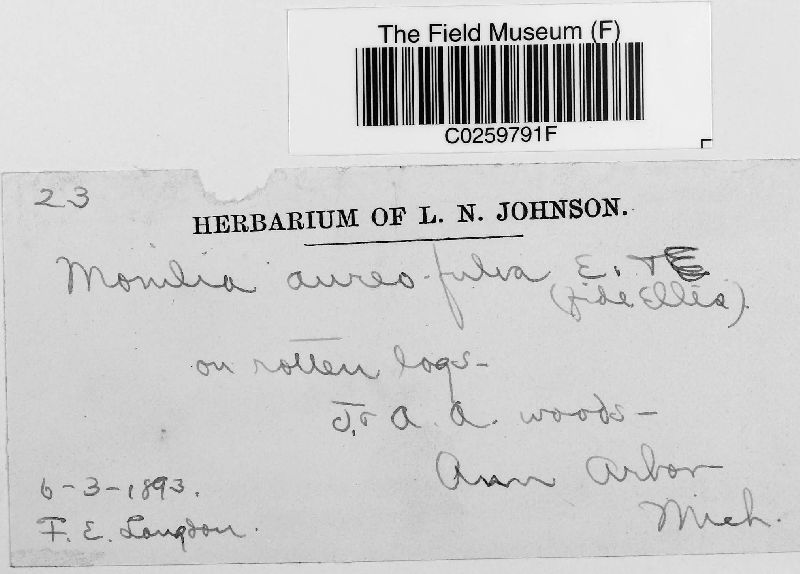 The Field Museum (F)
C0259791F
23
HERBARIUM OF L. N. JOHNSON.
Monilia aureo-fulva E. & E
(fide Ellis).
on rotten logs-
T. & A. A. woods-
Ann Arbor
Mich.
6-3-1893.
F. E. Langdon.